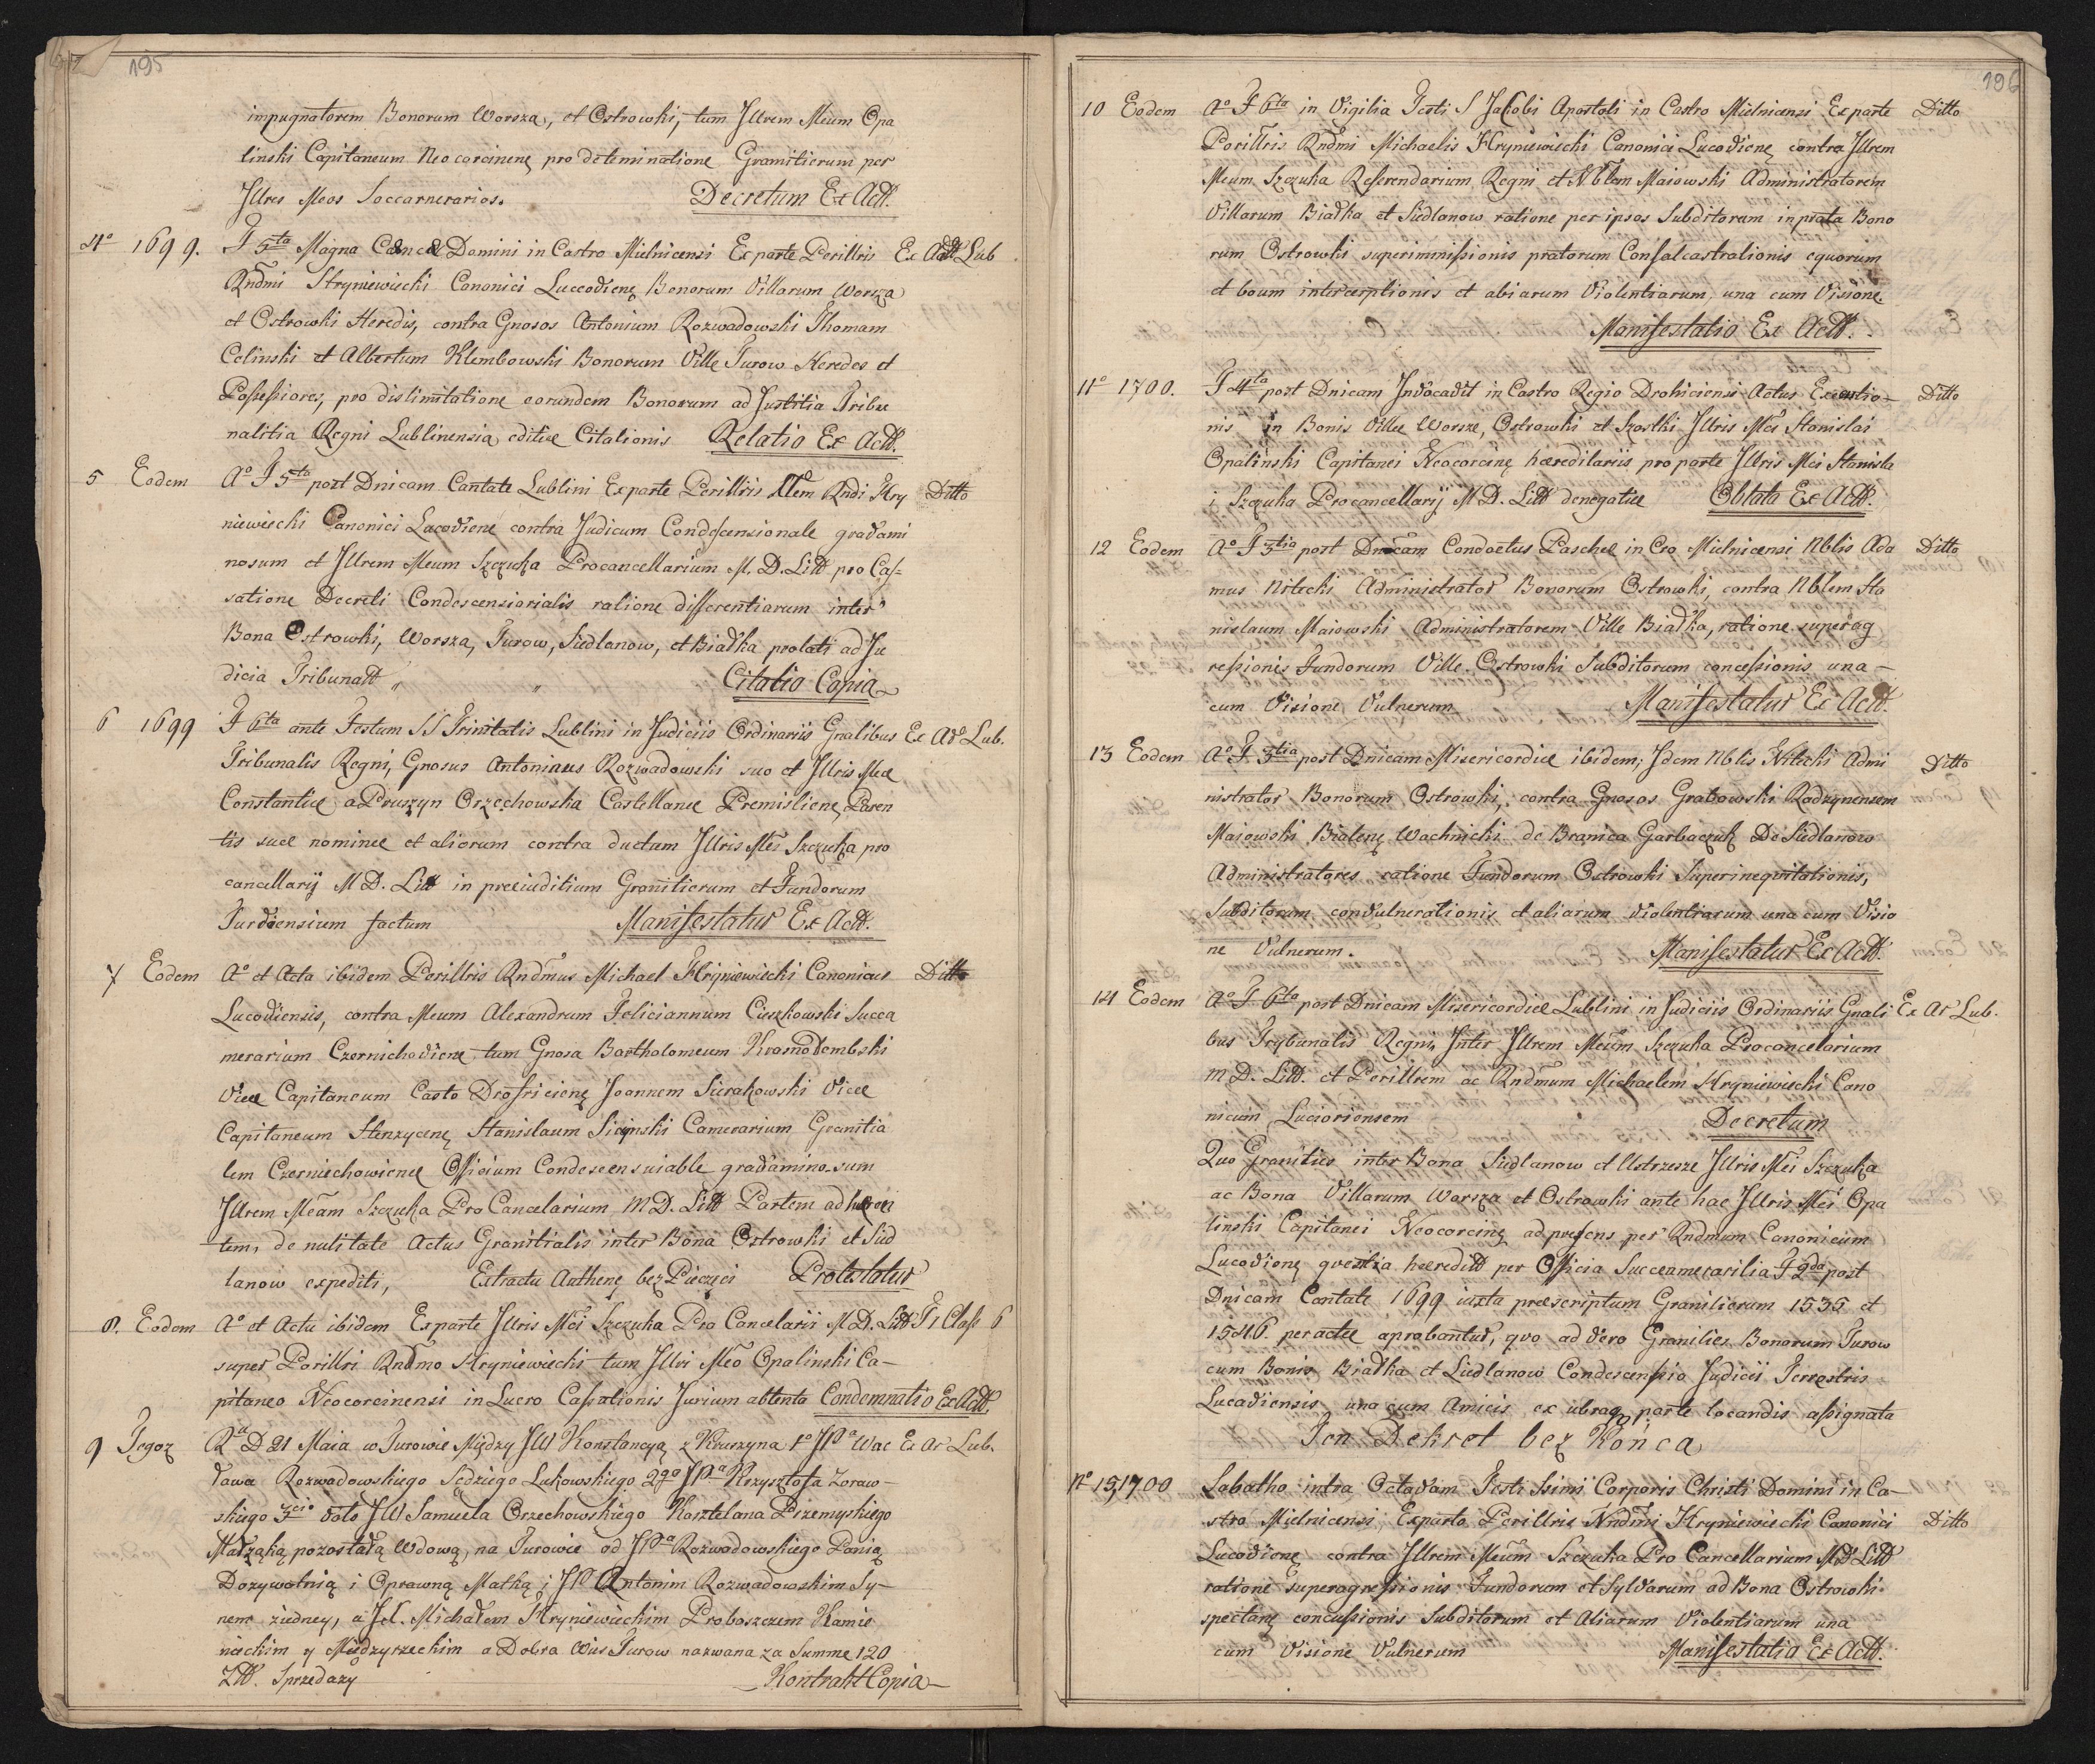 195
impugnatorem Bonorum Worsza, et Ostrowki, tum Jllrem Meum Opa
linski Capitaneum Neocorcinenę pro deteminatione Granitierum per
Jllres Meos Soccarnerarios. Decretum Ex Actt.
4º 1699. F 5ta Magna Cœnæ Domini in Castro Mielnicensi Ex parte Perillris Ex Actt Lub
Rndmi Hryniewiecki Canonici Luceodienę Bonorum Villarum Worsza
et Ostrowki Heredis, contra Gnosos Antonium Rozwadowski Thomam
Celinski et Albertum Klembowski Bonorum Villę Turow Heredes et
Possessiores, pro dislimitatione eorundem Bonorum ad Justitia Tribu
nalitia Regni Lublinensia editæ Citationis Relatio Ex Actt.
5 Eodem Aº F 5ta post Dnicam Cantate Lublini Ex parte Perillris Rndi Hry Ditto
niewiecki Canonici Lucodienę contra Judicum Condescensionale gravami
nosum et Jllrem Meum Szczuka Procancellarium M. D. Litt pro Cas=
satione Decreti Condescensiorialis ratione differentiarum inter
Bona Ostrowki, Worsza, Turow, Siedlanow, et Białka prolati ad Ju
dicia Tribunatt „ „ Citatio Copia
6 1699 F 6ta ante Festum SS Trinitatis Lublini in Judiciis Ordinariis Gnalibus Ex Adº Lub.
Tribunalis Regni, Gnosus Antonianus Rozwadowski suo et Jllris Meæ
Constantiæ a Pruszyn Orzechowska Castellanæ Premislienę Paren
tis suæ nominæ et aliorum contra ductum Jllris Mei Szczuka pro
cancellarij M D. Litt in preiuditium Granitierum et Fundorum
Turoviensium factum Manifestatur Ex Actt.
7 Eodem Aº et Acta ibidem Perillris Rndmus Michael Hryniewiecki Canonicus Ditto
Lucodiensis, contra Meum Alexandrum Feliciannum Cieszkowski Succa
merarium Czernichovienę tum Gnosa Bartholomeum Krasnodembski
Vice Capitaneum Casto Drohicienę Joannem Sierakowski Vice
Capitaneum Stenzycenę Stanislaum Camerarium Granitia
lem Czerniechowiencę Officium Condescensuiable gravamino-sum
Jllrem Meam Szczuka Pro Cancelarium M D. Litt Partem adhæren
tem, de nulitate Actus Granitialis inter Bona Ostrowki et Sied
lanow expediti, Extractu Authenę bez Pieczęci Protestatur
8. Eodem Aº et Actu ibidem Ex parte Jllris Mei Szczuka Pro Cancelarii M D. Litt Fr Class 6
super Perillri Rndmo Hryniewiecki tum Jllri Meo Opalinski Ca-
pitaneo Neocorcinensi in Lucro Cassationis Jurium attento Condemnatio Ex Actt.
9 Tegoż Ru D 21 Maia w Turowie Między JW Konstancyą z Kruszyna 1º JPa Wac Ex Ar Lub.
ława Rozwadowskiego Sędziego Łukowskiego 2go JPa Krzysztofa Zoraw-
skiego 3cio Voto JW Samuela Orzechowskiego Kasztelana Przemyskiego
Małżąką pozostałą Wdową, na Turowie od JPa Rozwadowskiego Panią
Dozywotnią i Oprawną Matką i JP Antonim Rozwadowskim Sy-
nem ziedney, a JX. Michałem Hryniewieckim Proboszczem Kamie
nieckim y Międzyrzeckim a Dobra Wieś Turow nazwana za Summe 120
Ztt. Sprzedaży Kontrakt Copia
196
10 Eodem Aº F 6ta in Vigilia Festi S Jakobi Apostoli in Castro Mielnicensi Ex parte Ditto
Perillris Rndmi Michaelis Hryniewiecki Canonici Lucodienę contra Jllrem
Meum Szczuka Referendarium Regni et Nblem Maiowski Administratorem
Villarum Białka et Siedlanow ratione per ipsos Subditorum in prata Bono
rum Ostrowki superimmissionis pratorum Consalcastrationis equorum
et boum interceptionis et abiarum Violentiarum, una cum Visione.
Manifestatio Ex Actt.
11º 1700. F 4ta post Dnicam Jnvocavit in Castro Regio Drohiciensi Actus Executio- Ditto
nis in Bonis Villæ Worsze, Ostrowki et Szostki Jllris Mei Stanislai
Opalinski Capitanei Neocorcinę hæreditariis pro parte Jllris Mei Stanisla
i Szczuka Procancellarij M D. Litt denegatiæ Oblata Ex Actt.
12 Eodem Aº F 3tia post Dnicam Conductus Paschæ in Cro Mielnicensi Nblis Ada Ditto
mus Nitecki Administrator Bonorum Ostrowki, contra Nblem Sta
nislaum Maiowski Administratorem Villę Białka, ratione superag
ressionis Fundorum Villę Ostrowki Subditorum concessionis una-
cum Visione Vulnerum Manifestatur Ex Actt.
13 Eodem Aº F 3tia post Dnicam Misericordiæ ibidem, Jdem Nblis Nitecki Admi Ditto
nistrator Bonorum Ostrowki, contra Gnosos Grabowski Radzynensem
Maiowski Bialenę Wachnicki de Branica Garbaczuk De Siedlanow
Administratores ratione Fundorum Ostrowki Superinequitationis,
Subditorum convulnerationis et aliarum violentiarum una cum Visio
ne Vulnerum. Manifestatur Ex Actt.
14 Eodem Aº F 6ta post Dnicam Misericordiæ Lublini in Judiciis Ordinariis Gnali Ex Ar Lub.
bus Trybunalis Regni, Jnter Jllrem Meum Szczuka Procancelarium
M D. Litt. et Perillrem ac Rndmum Michaelem Hryniewiecki Cano
nicum Lucioriensem Decretum
Quo Granities inter Bona Siedlanow et Ustrzesze Jllris Mei Szczuka
ac Bona Villarum Worsza et Ostrowki ante hac Jllris Mei Opa
linski Capitanei Neocorcinę ad presens per Rndmum Canonicum
Lucodionę hæreditt per Officia Succenmerarilia F 2da post
Dnicam Cantate 1699 iuxta præscriptum Granilierum 1535 et
1546. peractæ aprobantur, qvo ad vero Granilies Bonorum Turow
cum Bonis Białka et Siedlanow Condescensio Judicii Terrestris
Lucadiensis una cum Amicis ex ubraq parte locandis assignata
Ten Dekret bez Końca,
Nº 15, 1700 Sabatho intra Octavam Festi Ssimi Corporis Christi Domini in Ca-
stro Mielnicensi Exparte Perillris Rndmi Hryniewiecki Canonici Ditto
Lucodienę contra Jllrem Meum Szczuka Pro Cancellarium M D Litt
ratione superagressionis Fundorum et Sylvarum ad Bona Ostrowki
spectanę concussionis Subditorum et Aliarum Violentiarum una
cum Visione Vulnerum Manifestatia Ex Actt.